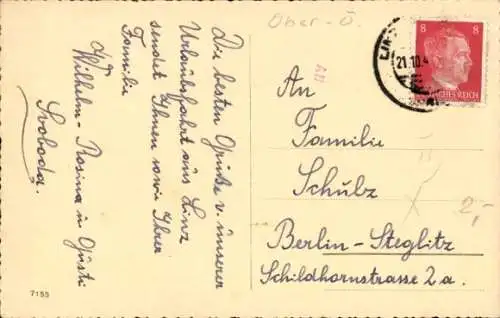 Ober-Ö.
Die besten Grüße v. unserer
Urlaubsfahrt aus Linz
sendet Ihnen sowie Ihrer
Familie
Wilhelm - Rosina u. Gusti
Svoboda.
7155
LINZ
21.10.4
8 8
DEUTSCHES REICH
An
Familie
Schulz
Berlin-Steglitz
Schildhornstrasse 2a.
2,-